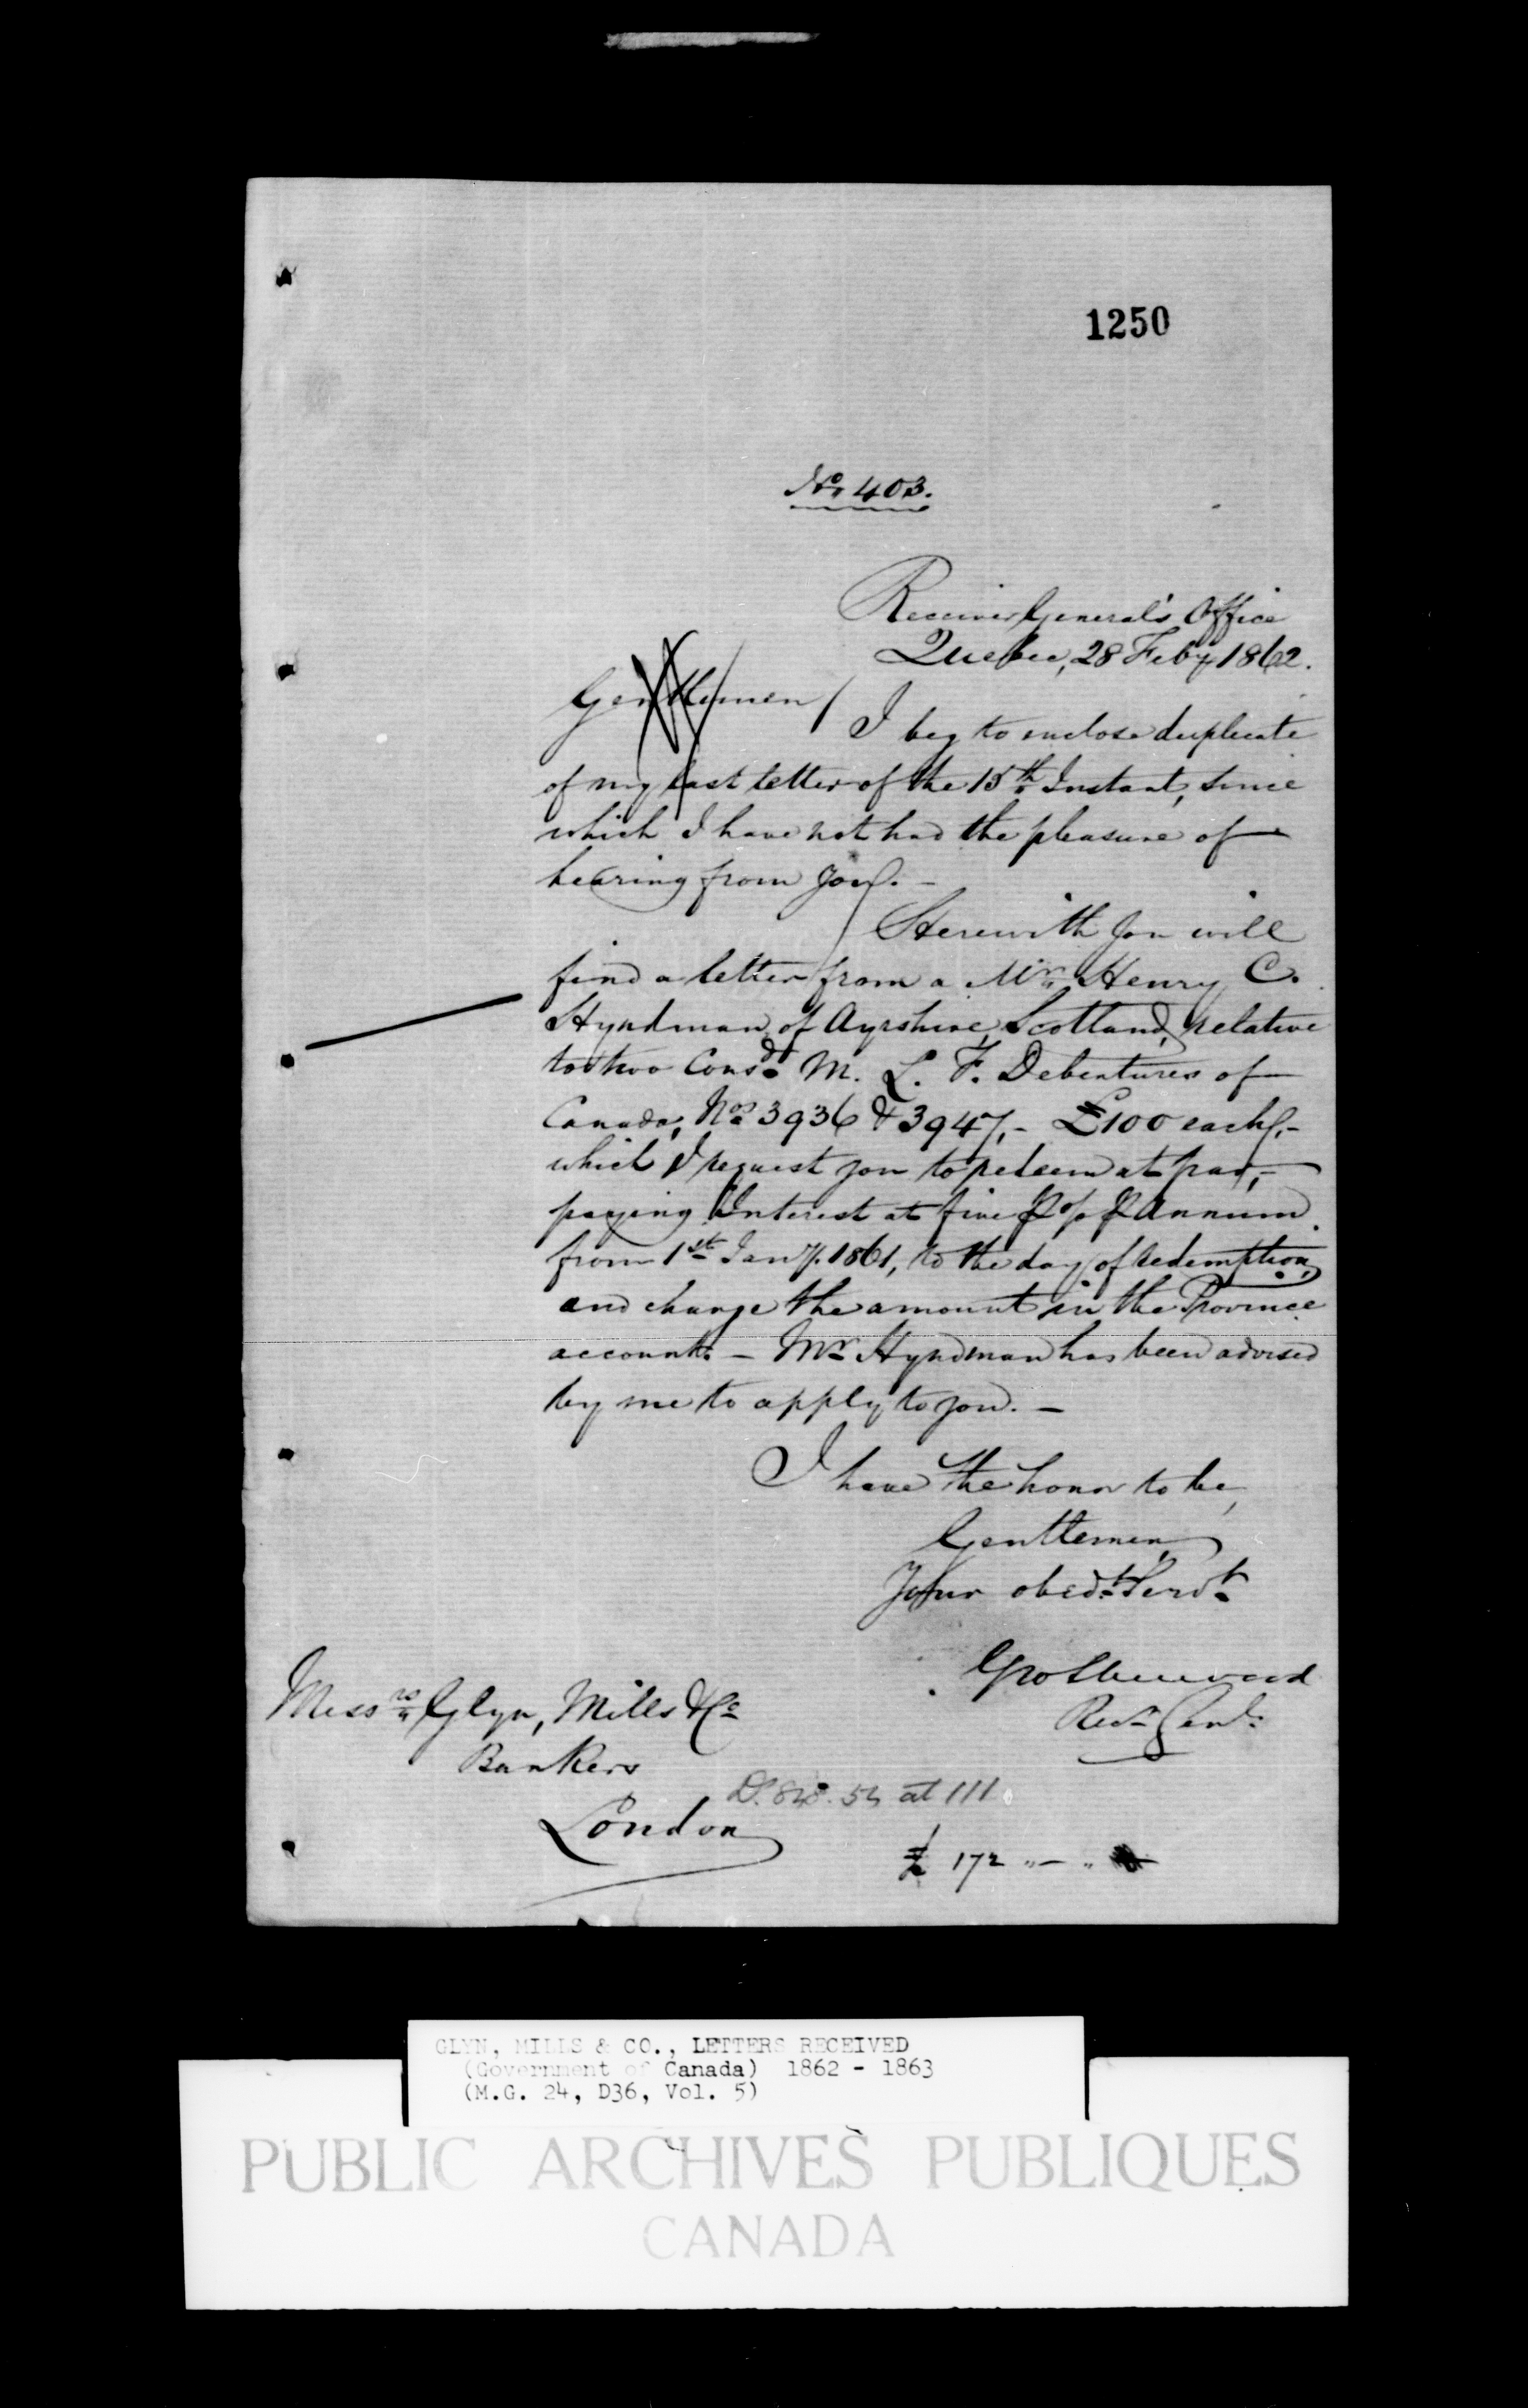 1250
No. 403.
Receiver General's Office
Quebec, 28 Feby 1862.
Gentlemen,
I beg to enclose duplicate
of my last letter of the 15th Instant, since
which I have not had the pleasure of
hearing from you. –
Herewith you will
find a letter from a Mr. Henry C.
Hyndman of Ayrshire, Scotland, relative
to two Consd. M. L. F. Debentures of
Canada, Nos. 3936 & 3947, – £100 each, –
which I request you to redeem at par, –
paying Interest at five P % P Annum
from 1st Jany. 1861, to the day of redemption,
and charge the amount in the Province
account. – Mr. Hyndman has been advised
by me to apply to you. –
I have the honor to be,
Gentlemen,
Your obedt. Servt.
Geo Sherwood
Recr. Genl.
Messrs. Glyn, Mills & Co.
Bankers
London
at 111
£ 172 " – "
GLYN, MILLS & CO., LETTERS RECEIVED
(Government of Canada) 1862 - 1863
(M.G. 24, D36, Vol. 5)
PUBLIC ARCHIVES PUBLIQUES
CANADA